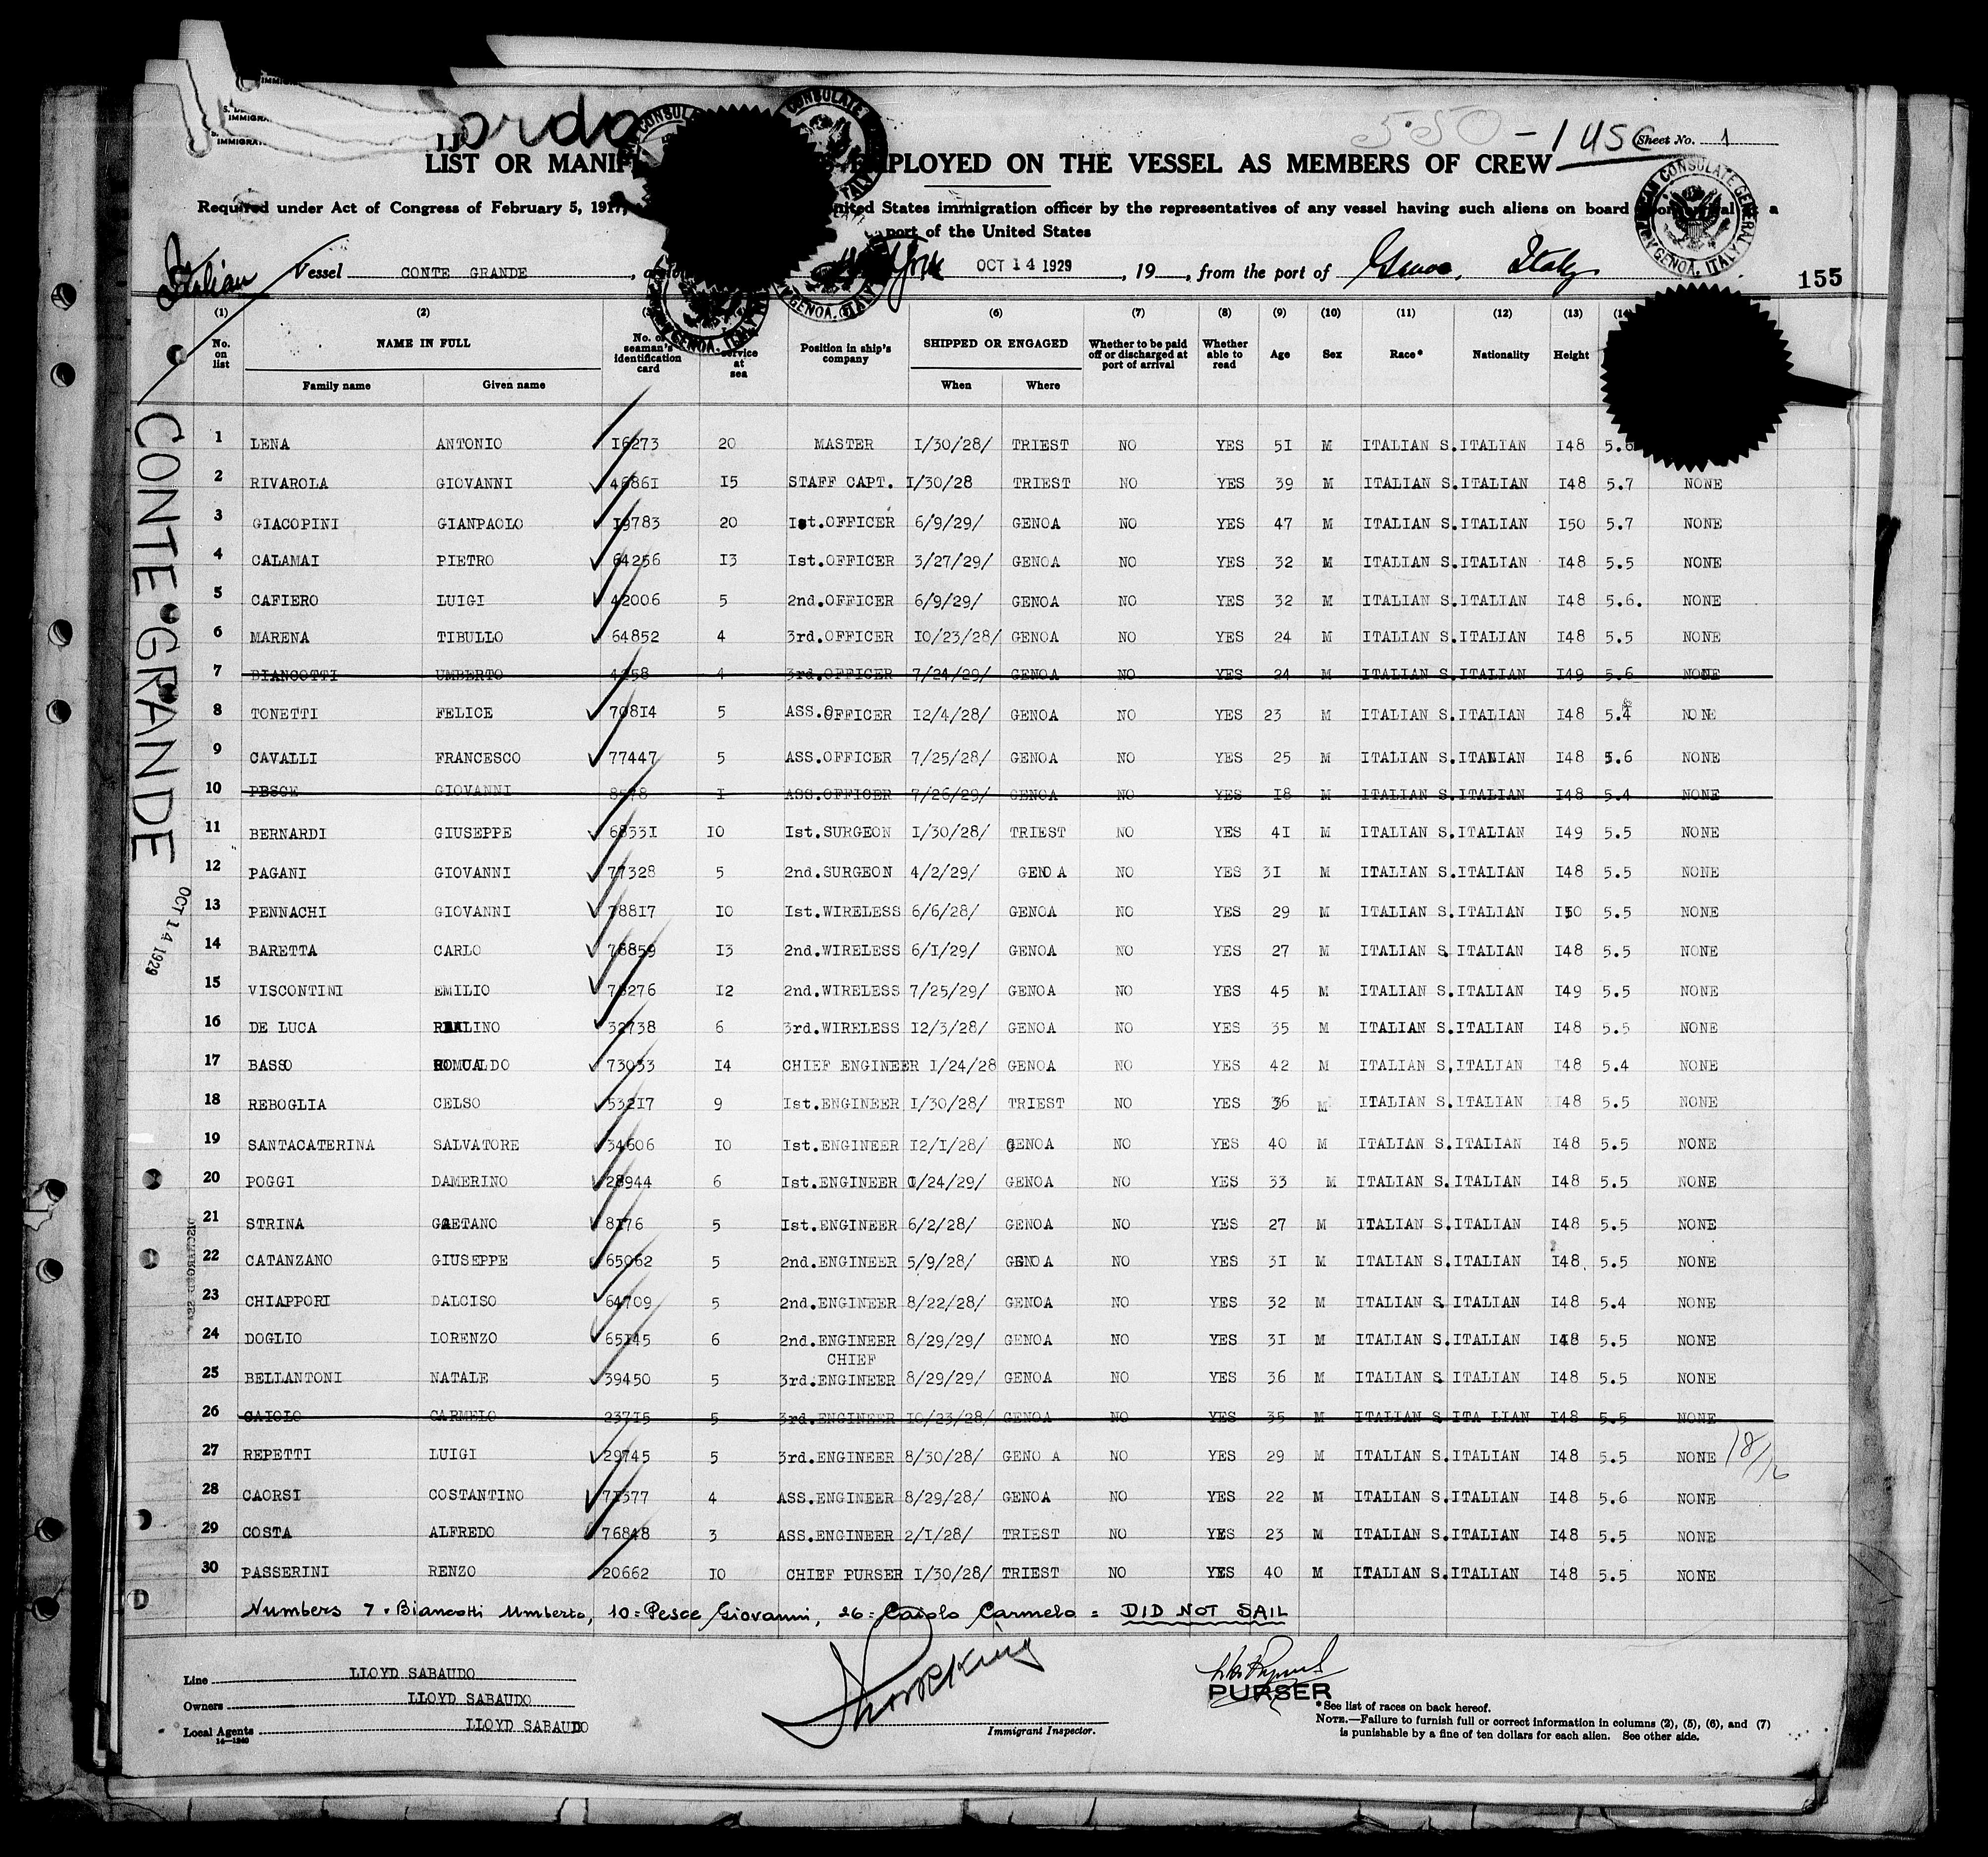 IMMIGRA
IMMIGRAT
ordo
550 - 1 USC
Sheet No. 1
LIST OR MANIF PLOYED ON THE VESSEL AS MEMBERS OF CREW
Required under Act of Congress of February 5, 1917, nited States immigration officer by the representatives of any vessel having such aliens on board a
port of the United States
Italian
Vessel CONTE GRANDE, York OCT 14 1929, 19, from the port of Genoa, Italy
155
AMERICAN CONSULATE GENERAL GENOA, ITALY
(1) (2) (6) (7) (8) (9) (10) (11) (12) (13)
No. on list NAME IN FULL Family name Given name No. of seaman's identification card service at sea Position in ship's company SHIPPED OR ENGAGED When Where Whether to be paid off or discharged at port of arrival Whether able to read Age Sex Race* Nationality Height
1 LENA ANTONIO 16273 20 MASTER 1/30/28/ TRIEST NO YES 51 M ITALIAN S. ITALIAN 148 5.6
2 RIVAROLA GIOVANNI 46861 15 STAFF CAPT. 1/30/28 TRIEST NO YES 39 M ITALIAN S. ITALIAN 148 5.7 NONE
3 GIACOPINI GIANPAOLO 19783 20 Ist.OFFICER 6/9/29/ GENOA NO YES 47 M ITALIAN S. ITALIAN 150 5.7 NONE
4 CALAMAI PIETRO 64256 13 Ist.OFFICER 3/27/29/ GENOA NO YES 32 M ITALIAN S. ITALIAN 148 5.5 NONE
5 CAFIERO LUIGI 42006 5 2nd.OFFICER 6/9/29/ GENOA NO YES 32 M ITALIAN S. ITALIAN 148 5.6. NONE
6 MARENA TIBULLO 64852 4 3rd.OFFICER 10/23/28/ GENOA NO YES 24 M ITALIAN S. ITALIAN 148 5.5 NONE
7 BIANCOTTI UMBERTO 4 3rd.OFFICER 7/24/29/ GENOA NO YES 24 M ITALIAN S. ITALIAN 149 5.6 NONE
8 TONETTI FELICE 70814 5 ASS.OFFICER 12/4/28/ GENOA NO YES 23 M ITALIAN S. ITALIAN 148 5.4 NONE
9 CAVALLI FRANCESCO 77447 5 ASS.OFFICER 7/25/28/ GENOA NO YES 25 M ITALIAN S. ITALIAN 148 5.6 NONE
10 PESCE GIOVANNI 1 ASS.OFFICER 7/26/29/ GENOA NO YES 18 M ITALIAN S. ITALIAN 148 5.4 NONE
11 BERNARDI GIUSEPPE 68331 10 Ist.SURGEON 1/30/28/ TRIEST NO YES 41 M ITALIAN S. ITALIAN 149 5.5 NONE
12 PAGANI GIOVANNI 77328 5 2nd.SURGEON 4/2/29/ GENOA NO YES 31 M ITALIAN S. ITALIAN 148 5.5 NONE
13 PENNACHI GIOVANNI 78817 10 Ist.WIRELESS 6/6/28/ GENOA NO YES 29 M ITALIAN S. ITALIAN 150 5.5 NONE
14 BARETTA CARLO 78859 13 2nd.WIRELESS 6/1/29/ GENOA NO YES 27 M ITALIAN S. ITALIAN 148 5.5 NONE
15 VISCONTINI EMILIO 78276 12 2nd.WIRELESS 7/25/29/ GENOA NO YES 45 M ITALIAN S. ITALIAN 149 5.5 NONE
16 DE LUCA REALINO 32738 6 3rd.WIRELESS 12/3/28/ GENOA NO YES 35 M ITALIAN S. ITALIAN 148 5.5 NONE
17 BASSO ROMUALDO 73053 14 CHIEF ENGINEER 1/24/28 GENOA NO YES 42 M ITALIAN S. ITALIAN 148 5.4 NONE
18 REBOGLIA CELSO 53217 9 Ist.ENGINEER 1/30/28/ TRIEST NO YES 36 M ITALIAN S. ITALIAN 148 5.5 NONE
19 SANTACATERINA SALVATORE 34606 10 Ist.ENGINEER 12/1/28/ GENOA NO YES 40 M ITALIAN S. ITALIAN 148 5.5 NONE
20 POGGI DAMERINO 28944 6 Ist.ENGINEER 1/24/29/ GENOA NO YES 33 M ITALIAN S. ITALIAN 148 5.5 NONE
21 STRINA GAETANO 8176 5 Ist.ENGINEER 6/2/28/ GENOA NO YES 27 M ITALIAN S. ITALIAN 148 5.5 NONE
22 CATANZANO GIUSEPPE 65062 5 2nd.ENGINEER 5/9/28/ GENOA NO YES 31 M ITALIAN S. ITALIAN 148 5.5 NONE
23 CHIAPPORI DALCISO 64709 5 2nd.ENGINEER 8/22/28/ GENOA NO YES 32 M ITALIAN S. ITALIAN 148 5.4 NONE
24 DOGLIO LORENZO 65145 6 2nd.ENGINEER 8/29/29/ GENOA NO YES 31 M ITALIAN S. ITALIAN 148 5.5 NONE
CHIEF
25 BELLANTONI NATALE 39450 5 3rd.ENGINEER 8/29/29/ GENOA NO YES 36 M ITALIAN S. ITALIAN 148 5.5 NONE
26 CAIOLO CARMELO 23715 5 3rd.ENGINEER 10/23/28/ GENOA NO YES 35 M ITALIAN S ITA LIAN 148 5.5 NONE
27 REPETTI LUIGI 29745 5 3rd.ENGINEER 8/30/28/ GENO A NO YES 29 M ITALIAN S. ITALIAN 148 5.5 NONE
28 CAORSI COSTANTINO 71377 4 ASS.ENGINEER 8/29/28/ GENOA NO YES 22 M ITALIAN S. ITALIAN 148 5.6 NONE
29 COSTA ALFREDO 76848 3 ASS.ENGINEER 2/1/28/ TRIEST NO YES 23 M ITALIAN S. ITALIAN 148 5.5 NONE
30 PASSERINI RENZO 20662 10 CHIEF PURSER 1/30/28/ TRIEST NO YES 40 M ITALIAN S. ITALIAN 148 5.5 NONE
Numbers 7 = Biancotti Umberto, 10 = Pesce Giovanni, 26 = Caiolo Carmelo = DID NOT SAIL
CONTE GRANDE
OCT 14 1929
Line LLOYD SABAUDO
Owners LLOYD SABAUDO
Local Agents LLOYD SABAUDO
14—1240
Immigrant Inspector.
PURSER
*See list of races on back hereof.
NOTE.—Failure to furnish full or correct information in columns (2), (5), (6), and (7)
is punishable by a fine of ten dollars for each alien. See other side.